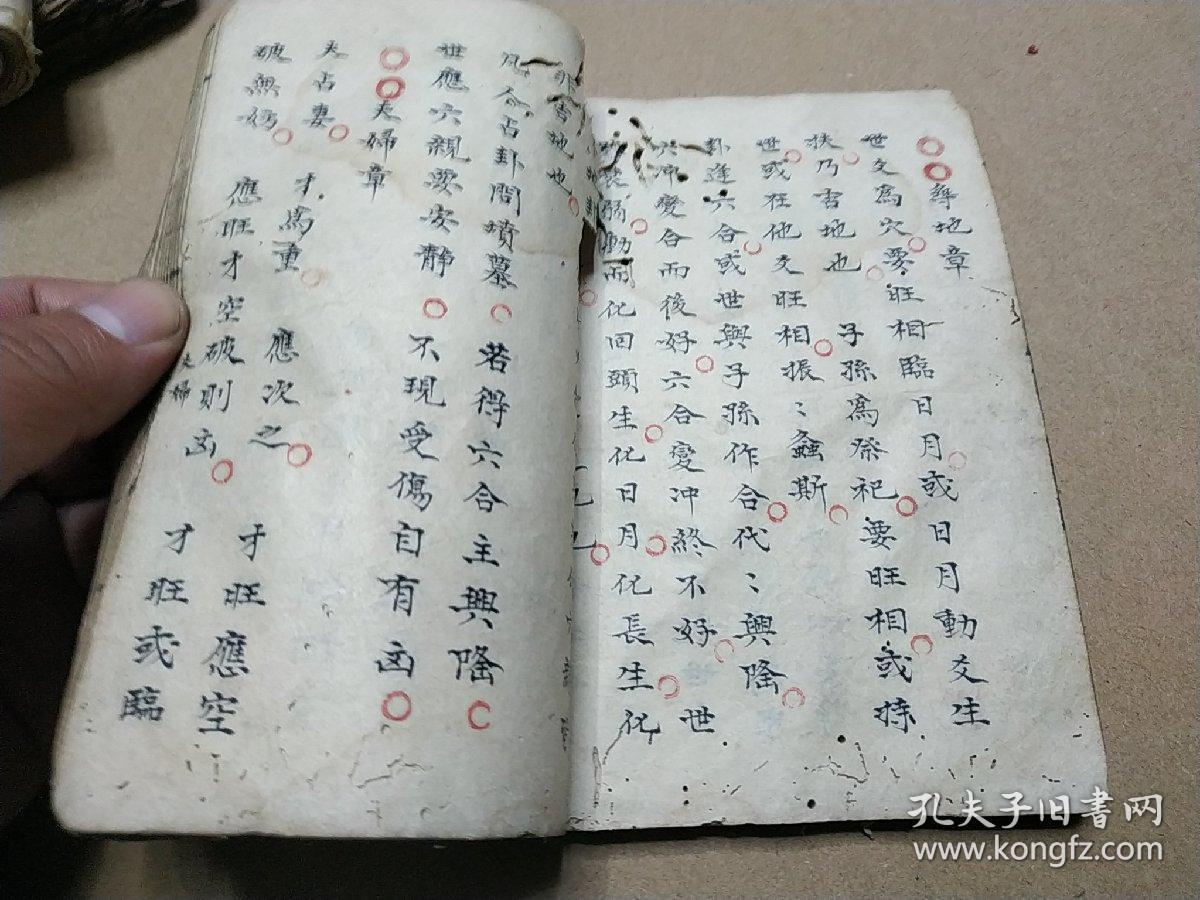 尋地章
世爻為穴要旺相臨日月或日月動爻生
扶乃吉地也 子孫為祭祀要旺相或持
世或在他爻旺相振〻螽斯
卦逢六合或世與子孫作合代〻興隆
六冲變合而後好六合變冲終不好 世
動而化回頭生化日月化長生化
吉地也
凡占卦問墳墓 若得六合主興隆
世應六親要安靜 不現受傷自有凶
夫婦章
夫占妻 才為重 應次之 才旺應空
破無妨 應旺才空破則凶 才旺或臨
夫婦
孔夫子旧书网
www.kongfz.com